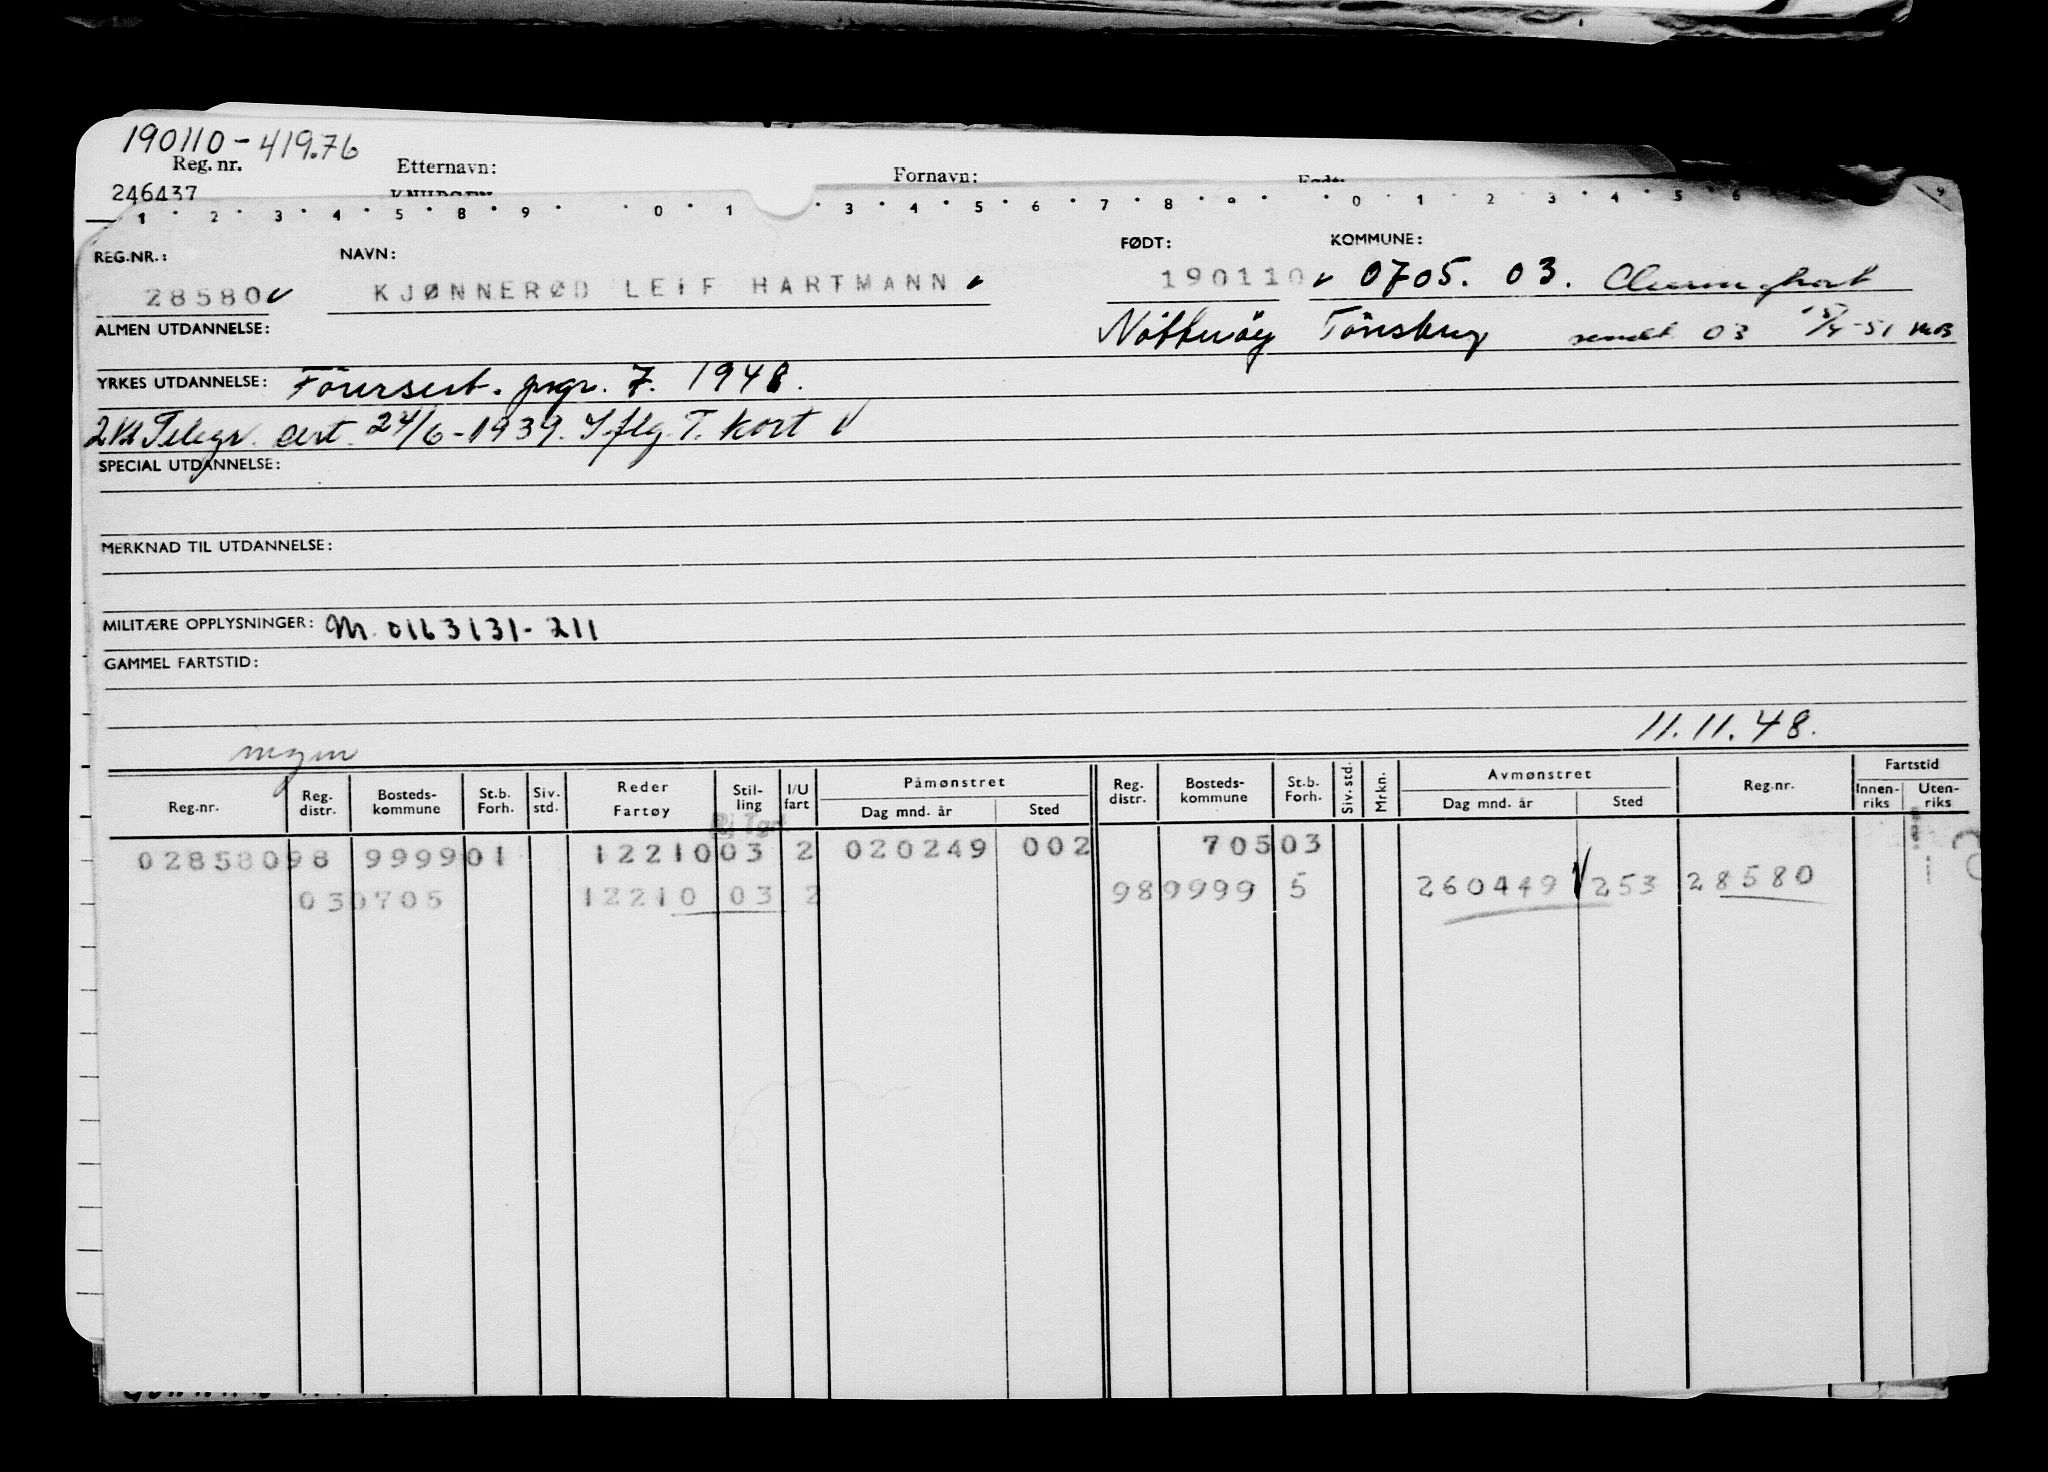 190110-419.76
Reg. nr. Etternavn: Fornavn:
246437
1 · 2 · 3 · 4 · 5 · 8 · 9 · · 0 · 1 · 3 · 4 · 5 · 6 · 7 · 8 · 9 · · 0 · 1 · 2 · 3 · 4 · 5 · 6 9
REG.NR.: NAVN: FØDT: KOMMUNE:
28580 ✓ KJØNNERØD LEIF HARTMANN ✓ 190110 ✓ 0705. 03.
ALMEN UTDANNELSE: Nötteröy Tönsberg sendt 03
YRKES UTDANNELSE: Förersert. pngr. 7. 1948.
2 Kl Telegr. Cert. 24/6-1939. Iflg. T. Kort ✓
SPECIAL UTDANNELSE:
MERKNAD TIL UTDANNELSE:
MILITÆRE OPPLYSNINGER: M. 0163131-211
GAMMEL FARTSTID:
11.11.48.
Reg.nr. Reg. distr. Bosteds-kommune St.b. Forh. Siv. std. Reder Fartøy Stil-ling I/U fart Påmønstret Dag mnd. år Sted Reg. distr. Bosteds-kommune St.b. Forh. Siv. std. Mrkn. Avmønstret Dag mnd. år Sted Reg.nr. Fartstid Innen-riks Uten-riks
028580 98 9999 01 12210 03 2 020249 002 705 03
03 0705 12210 03 2 98 9999 5 260449 ✓ 253 28580